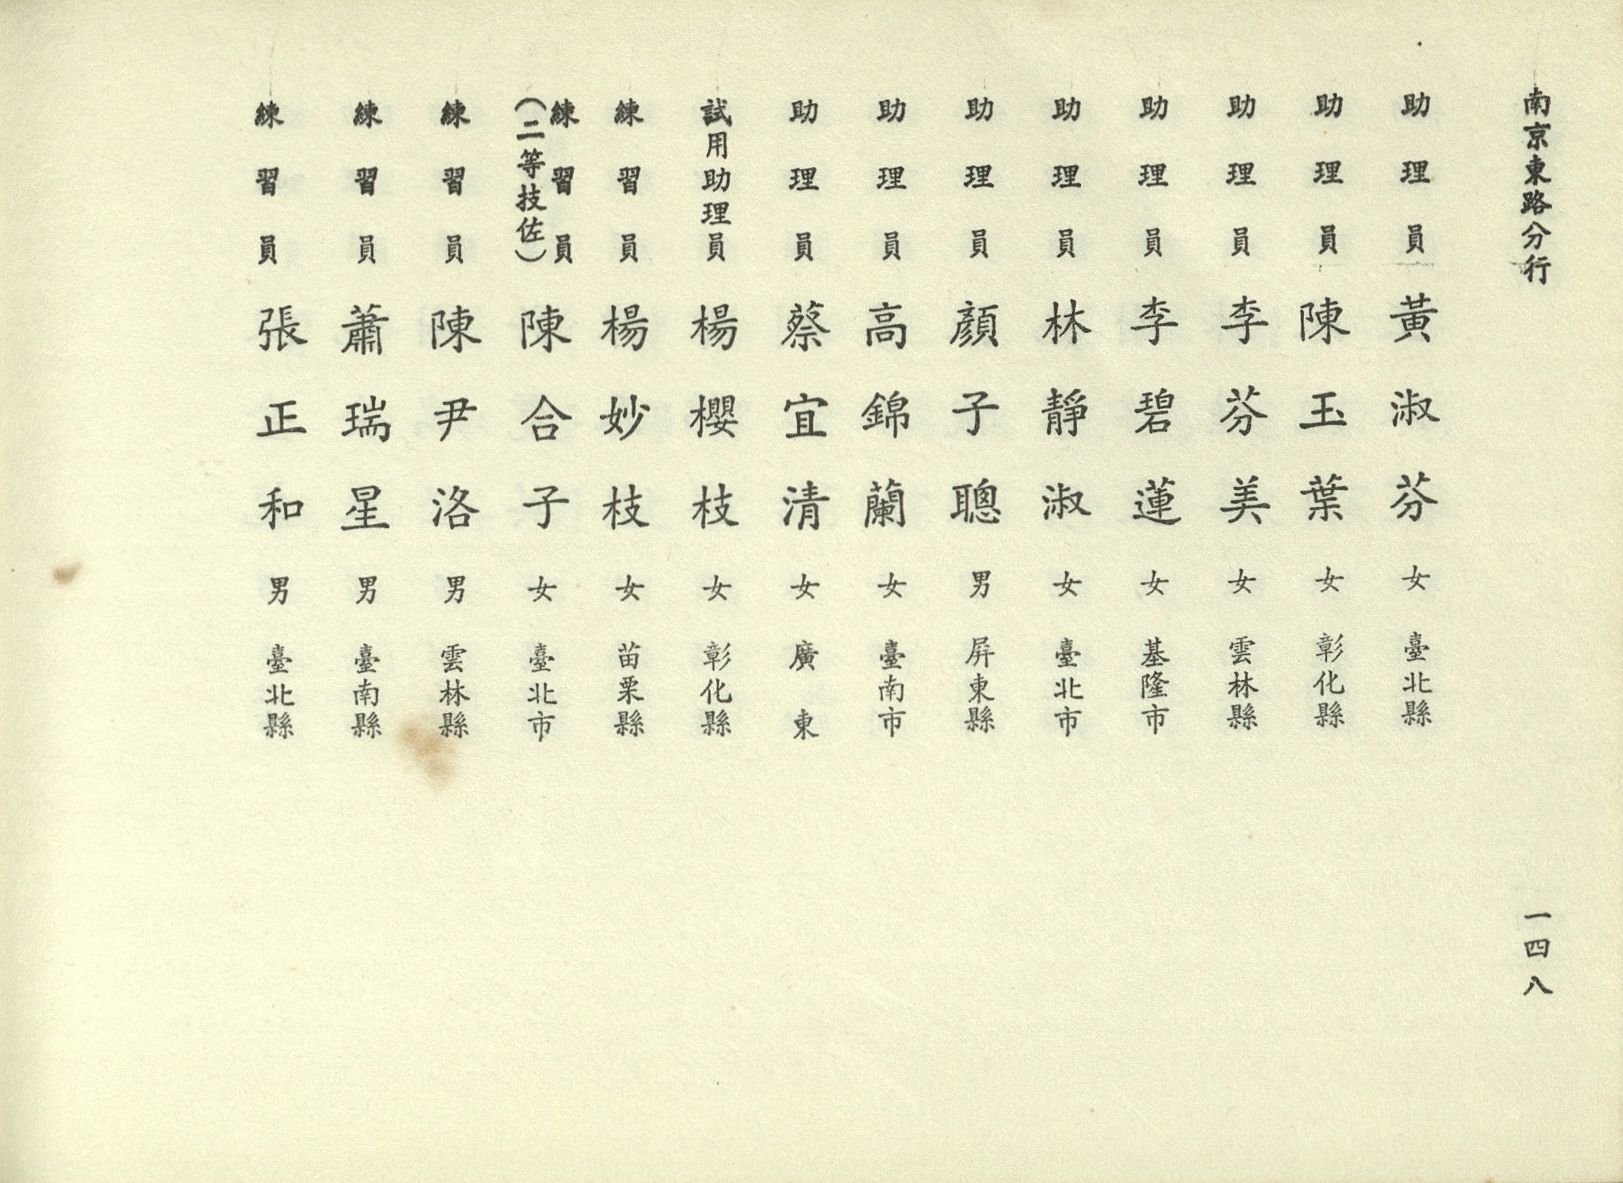 南京東路分行
一四八
助理員 黃淑芬 女 臺北縣
助理員 陳玉葉 女 彰化縣
助理員 李芬美 女 雲林縣
助理員 李碧蓮 女 基隆市
助理員 林靜淑 女 臺北市
助理員 顏子聰 男 屏東縣
助理員 高錦蘭 女 臺南市
助理員 蔡宜清 女 廣東
試用助理員 楊櫻枝 女 彰化縣
練習員 楊妙枝 女 苗栗縣
練習員(二等技佐) 陳合子 女 臺北市
練習員 陳尹洛 男 雲林縣
練習員 蕭瑞星 男 臺南縣
練習員 張正和 男 臺北縣